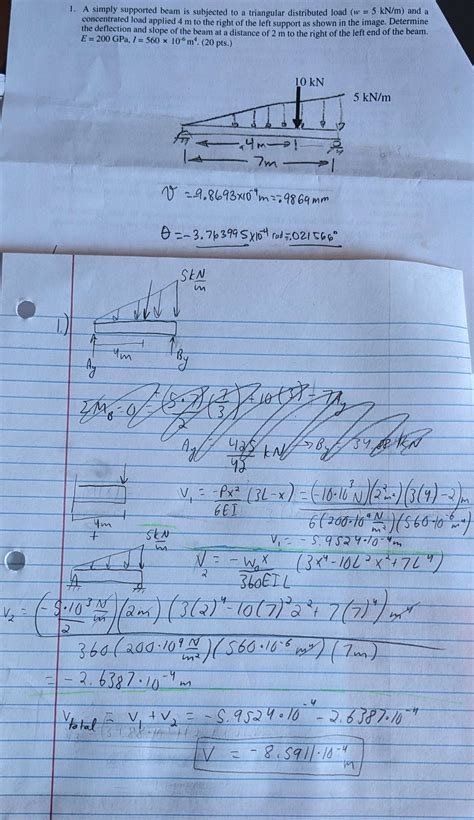 1. A simply supported beam is subjected to a triangular distributed load (w = 5 kN/m) and a
concentrated load applied 4 m to the right of the left support as shown in the image. Determine
the deflection and slope of the beam at a distance of 2 m to the right of the left end of the beam.
E = 200 GPa, I = 560 × 10⁻⁶ m⁴. (20 pts.)
10 kN
5 kN/m
4m
7m
v = -9.8693×10⁻⁴ m = -.9869 mm
θ = -3.763995×10⁻⁴ rad = .021566°
5 kN/m
1.)
4m
Ay
By
ΣM_B = 0 = (5·7)/2 (7/3) + 10(3) - 7Ay
Ay = 425/42 kN → By
4m
+
V₁ = -Px²/6EI (3L-x) = (-10·10³ N)(2² m²)(3(4)-2)m / 6(200·10⁹ N/m²)(560·10⁻⁶ m⁴)
V₁ = -5.9524·10⁻⁴ m
5 kN/m
A
V₂ = -w₀x/360EIL (3x⁴-10L²x²+7L⁴)
V₂ = (-5·10³ N/m /2)(2m)(3(2)⁴-10(7)²2²+7(7)⁴)m⁴ / 360(200·10⁹ N/m²)(560·10⁻⁶ m⁴)(7m)
= -2.6387·10⁻⁴ m
V total = V₁ + V₂ = -5.9524·10⁻⁴ - 2.6387·10⁻⁴
V = -8.5911·10⁻⁴ m